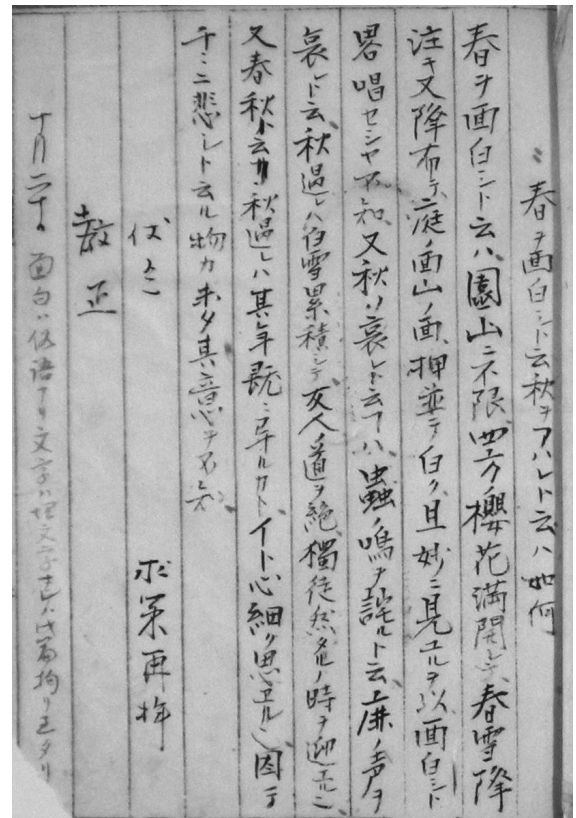 春ヲ面白シト云秋ヲアハレト云ハ如何
春ヲ面白シト云ハ園山ニ不限四方櫻花満開シテ春雪降
注キ又降布テ庭ノ面山ノ面押並テ白ク且妙ニ見エルヲ以面白シト
唱セシヤ不知又秋ヲ哀レト云フハ蟲ノ鳴ヲ謡ルト云鹿ノ声ヲ
哀レト云秋過レハ白雪累積シテ友人道ヲ絶獨徒然タルノ時ヲ迎エル
又春秋ト云フ秋過レハ其年既ニ ルカトイト心細ク思エル 因テ
悲シト云ル物カ未タ其意ヲ不知
伏乞
求策再拝
教正
十月二十 面白ハ俗語ナリ文字ハ 拘リ